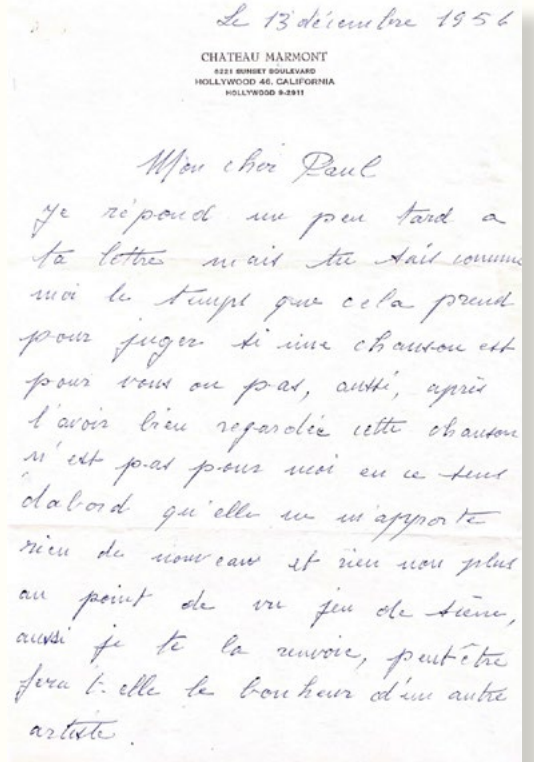 Le 13 décembre 1956
CHATEAU MARMONT
8221 SUNSET BOULEVARD
HOLLYWOOD 46, CALIFORNIA
HOLLYWOOD 9-2911
Mon cher Paul
Je répond un peu tard a
ta lettre mais tu sais comme
moi le temps que cela prend
pour juger si une chanson est
pour vous ou pas, aussi, après
l'avoir bien regardée cette chanson
n'est pas pour moi en ce sens
dabord qu'elle ne m'apporte
rien de nouveau et rien non plus
au point de vu jeu de scène,
aussi je te la renvoie, peut-être
fera t-elle le bonheur d'un autre
artiste.